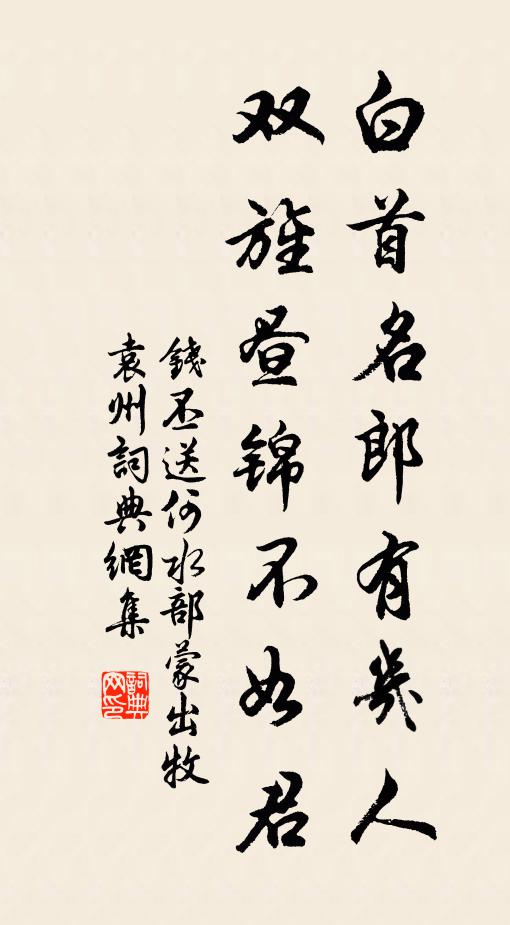 白首名郎有幾人
双旌昼锦不如君
錢丕送何水部蒙出牧
袁州詞典網集
詞典网印